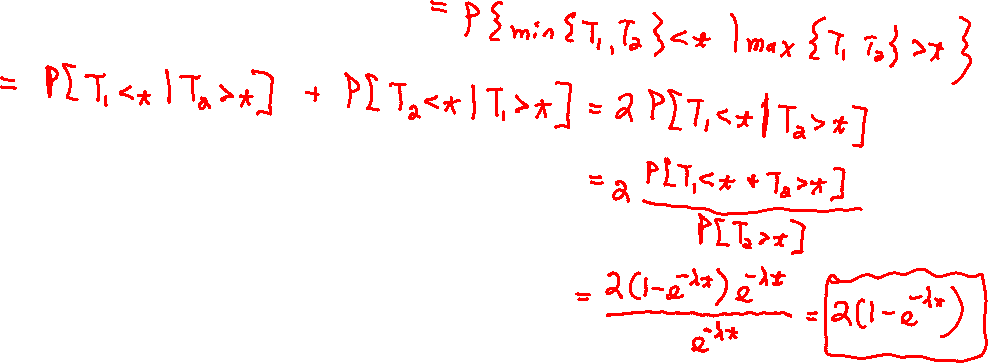 = P{min{T₁,T₂}<t | max{T₁ T₂}>t}
= P[T₁<t | T₂>t] + P[T₂<t | T₁>t] = 2 P[T₁<t | T₂>t]
= 2 P[T₁<t + T₂>t] / P[T₂>t]
= 2(1-e^{-λt}) e^{-λt} / e^{-λt} = 2(1-e^{-λt})